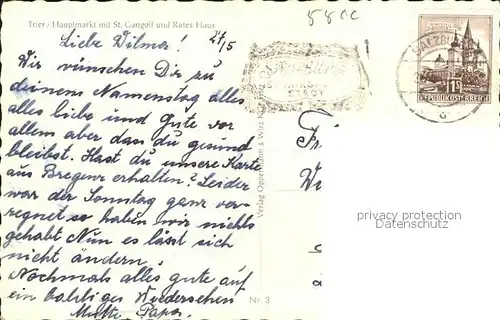 5800
Trier / Hauptmarkt mit St. Gangolf und Rotes Haus
Liebe Wilma! 27/5
Wir wünschen Dir zu
deinem Namenstag alles
alles liebe und Gute vor
allem aber dass du gesund
bleibst. Hast du unsere Karte
aus Bregenz erhalten? Leider
war der Sonntag ganz ver-
regnet so haben wir nichts
gehabt Nun es lässt sich
nicht ändern.
Nochmals alles gute auf
ein baldiges Wiedersehen
Mutti Papa.
Verlag Oppermann &
Nr. 3
1S
REPUBLIK ÖSTERREICH
privacy protection
Datenschutz